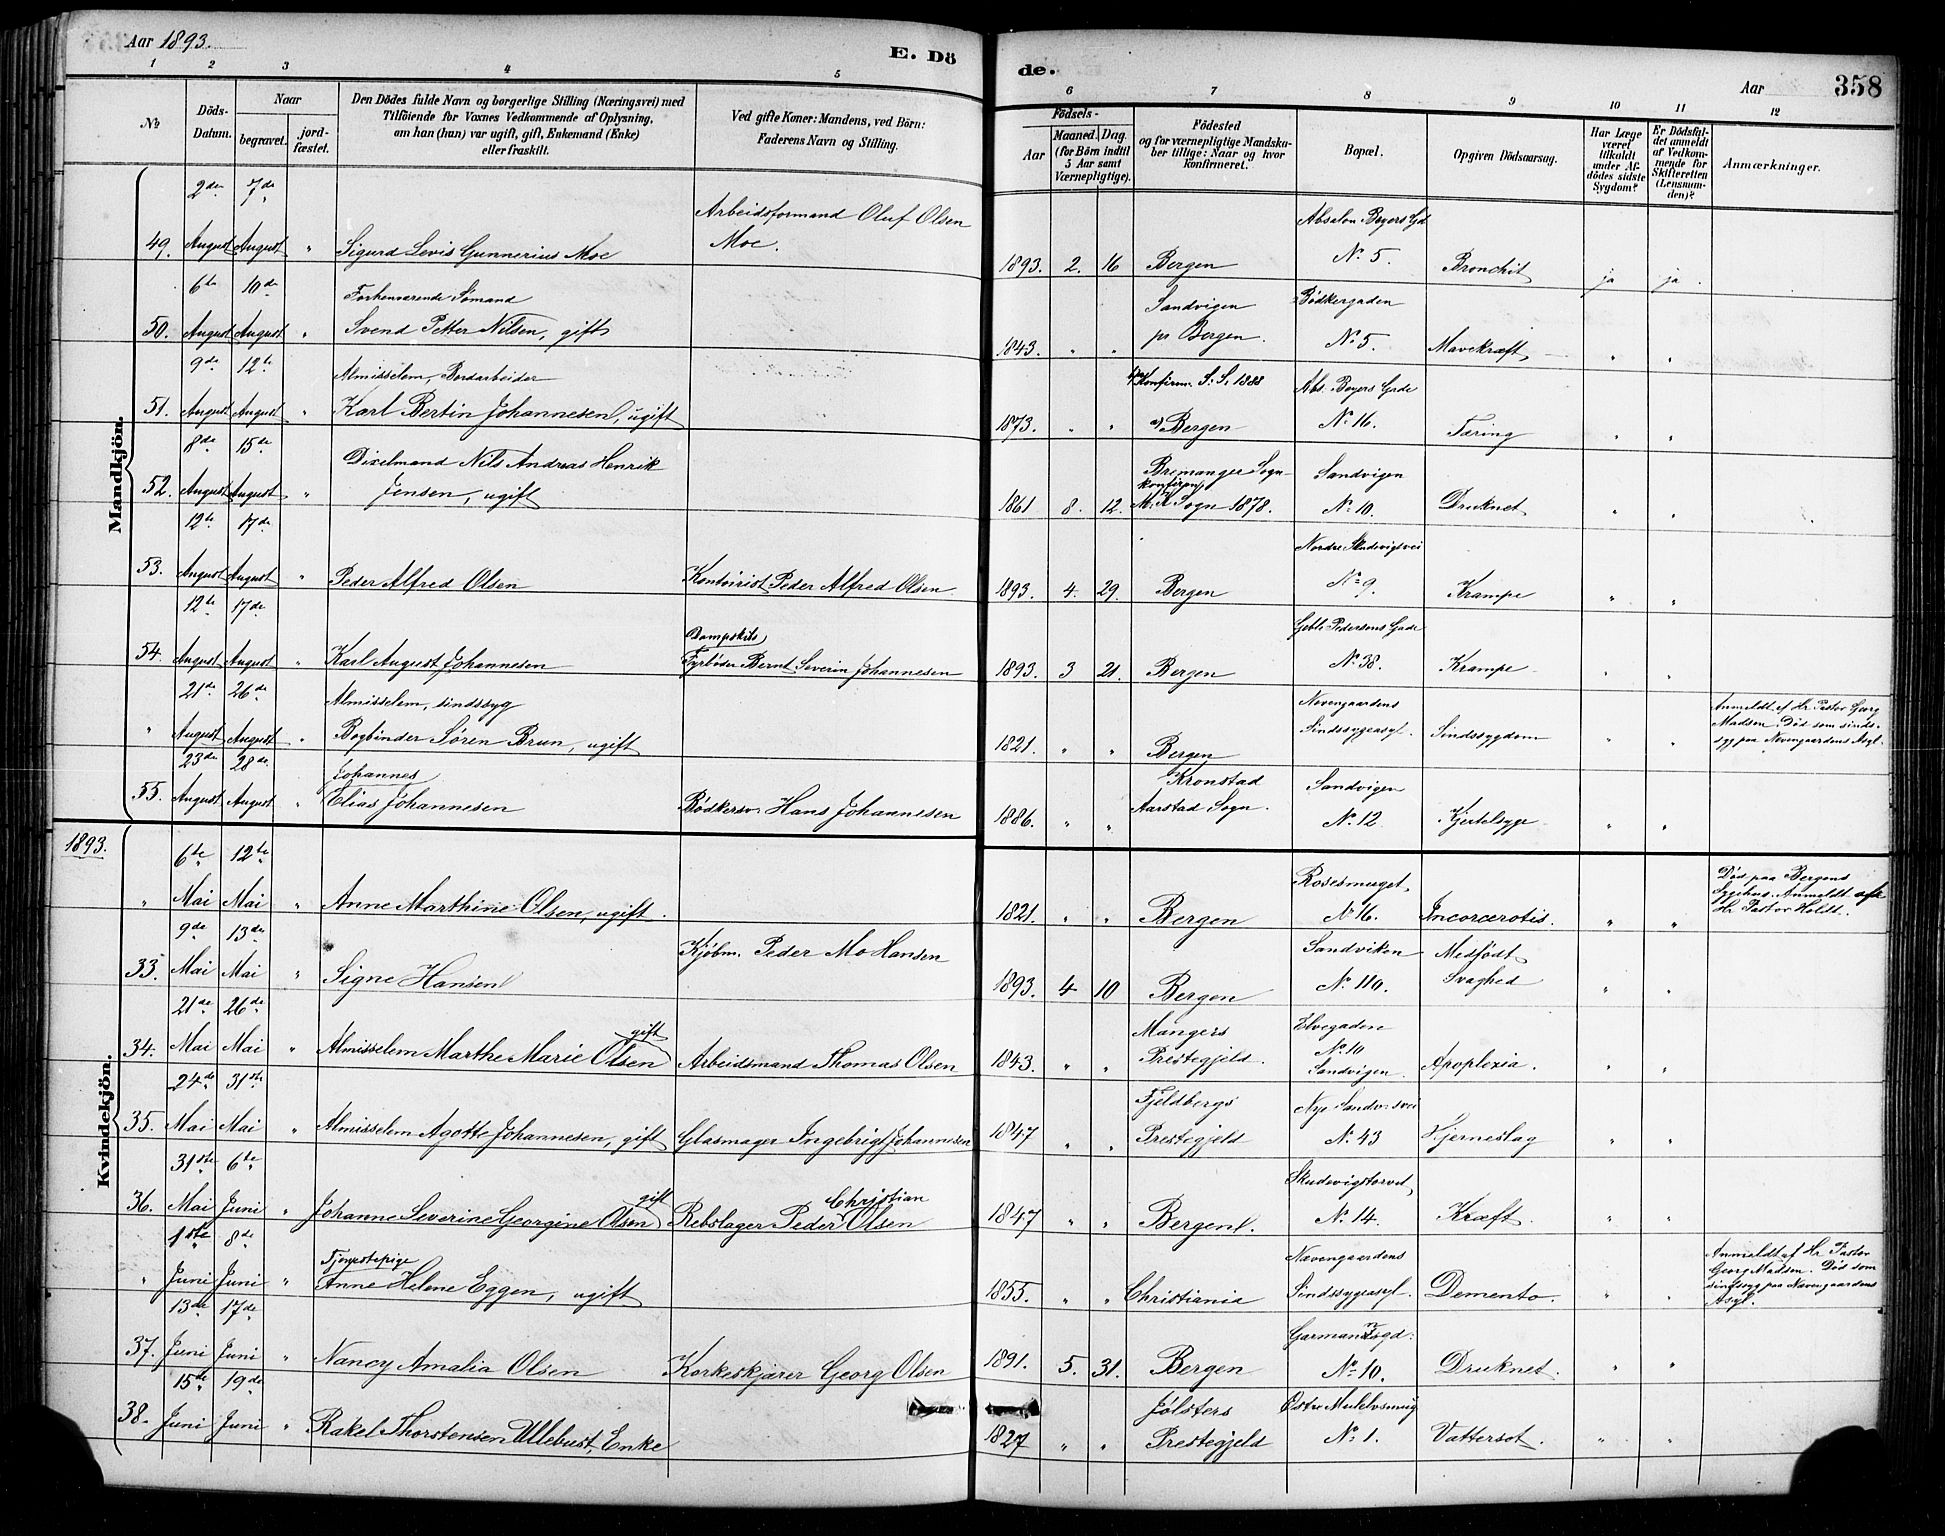 Aar 1893.
E. Dö
de.
Aar
358
1 2 3 4 5 6 7 8 9 10 11 12
No
Döds-
Datum.
Naar
begravet.
jord-
fæstet.
Den Dödes fulde Navn og borgerlige Stilling (Næringsvei) med
Tilföiende for Voxnes Vedkommende af Oplysning,
om han (hun) var ugift, gift, Enkemand (Enke)
eller fraskilt.
Ved gifte Koner: Mandens, ved Börn:
Faderens Navn og Stilling.
Födsels-
Aar
Maaned. Dag.
(for Börn indtil
5 Aar samt
Værnepligtige).
Födested
og for værnepligtige Mandska-
ber tillige: Naar og hvor
konfirmeret.
Bopæl.
Opgiven Dödsaarsag.
Har Læge
været
tilkaldt
under Af-
dödes sidste
Sygdom?
Er Dödsfal-
det anmeldt
af Vedkom-
mende for
Skifteretten
(Lensman-
den)?
Anmærkninger.
Mandkjön.
2den 7de
Arbeidsformand Oluf Olsen
Absalon Beyers Gd
49. August August " Sigurd Levis Gunnerius Moe Moe. 1893. 2. 16 Bergen No 5. Bronchit ja ja.
6te 10de
Forhenværende Sømand
Sandvigen Bødkergaden
50. August August " Svend Petter Nilsen, gift 1843. " " pr Bergen. No 5. Mavekræft " "
9de 12te
Almisselem, Bordarbeider
Konfirm. S. S. 1888 Abs. Beyers Gade
51. August August " Karl Bertin Johannesen, ugift 1873. " " Bergen No 16. Tæring " "
8de 15de
Dixelmand Nils Andreas Henrik
Bremanger Sogn Sandvigen
konfirm.
52. August August " Jensen, ugift 1861 8. 12. M. K. Sogn 1878. No 10. Druknet " "
12te 17de
Nordre Skudevigsvei
53. August August " Peder Alfred Olsen Kontorist Peder Alfred Olsen 1893. 4. 29. Bergen No 9. Krampe " "
12te 17de
Dampskibs
Geble Pedersens Gade
54. August August " Karl August Johannesen Fyrbøder Bernt Severin Johannesen 1893. 3 21. Bergen No 38. Krampe " "
21de 26de
Almisselem, sindssyg
Nevengaardens
Anmeldt af Hr Pastor Georg
Madsen. Død som sinds-
syg paa Nevengaardens Asyl.
" August August " Bogbinder Søren Brun, ugift 1821. " " Bergen Sindssygeasyl. Sindssygdom " "
23de 28de
Johannes
Kronstad Sandvigen
55. August August " Elias Johannesen Bødkersv. Hans Johannesen 1886. " " Aarstad Sogn. No 12. Kjertelsyge " "
1893.
Kvindekjön.
6te 12te
Rosesmuget,
Død paa Bergens
Sygehus. Anmeldt af
Hr Pastor Holdt.
" Mai Mai " Anne Marthine Olsen, ugift. 1821. " " Bergen No 16. Incorcerotis. " "
9de 13de
Kjøbm. Peder Mo Hansen
Sandviken Medfødt
33. Mai Mai " Signe Hansen 1893. 4 10 Bergen No 110. Svaghed " "
21de 26de
gift
Mangers Elvegaden
No 10
34. Mai Mai " Almisselem Marthe Marie Olsen Arbeidsmand Thomas Olsen 1843. " " Prestegjeld. Sandvigen. Apoplexia. " "
24de 31ste
Fjeldbergs Nye Sandvsvei
35. Mai Mai " Almisselem Agotte Johannesen, gift Glasmager Ingebrigt Johannesen 1847 " " Prestegjeld No 43 Hjerneslag " "
31ste 6te
gift Christian
Skudevigstorvet,
36. Mai Juni " Johanne Severine Georgine Olsen Rebslager Peder Olsen 1847 " " Bergen. No 14. Kræft. " "
1ste 8de
Tjenestepige
Nevengaardens
Anmeldt af Hr Pastor
Georg Madsen. Død som
sindssyg paa Nevengaardens
Asyl.
" Juni Juni " Anne Helene Eggen, ugift 1855. " " Christiania Sindssygeasyl. Demento. " "
13de 17de
37. Juni Juni " Nancy Amalia Olsen Korkeskjærer Georg Olsen 1891. 5. 31. Bergen No 10. Druknet. " "
15de 19de
Jølsters
38. Juni Juni " Rakel Thorstensen Ullebust, Enke 1827 " " Prestegjeld No 1. Vattersot. " "